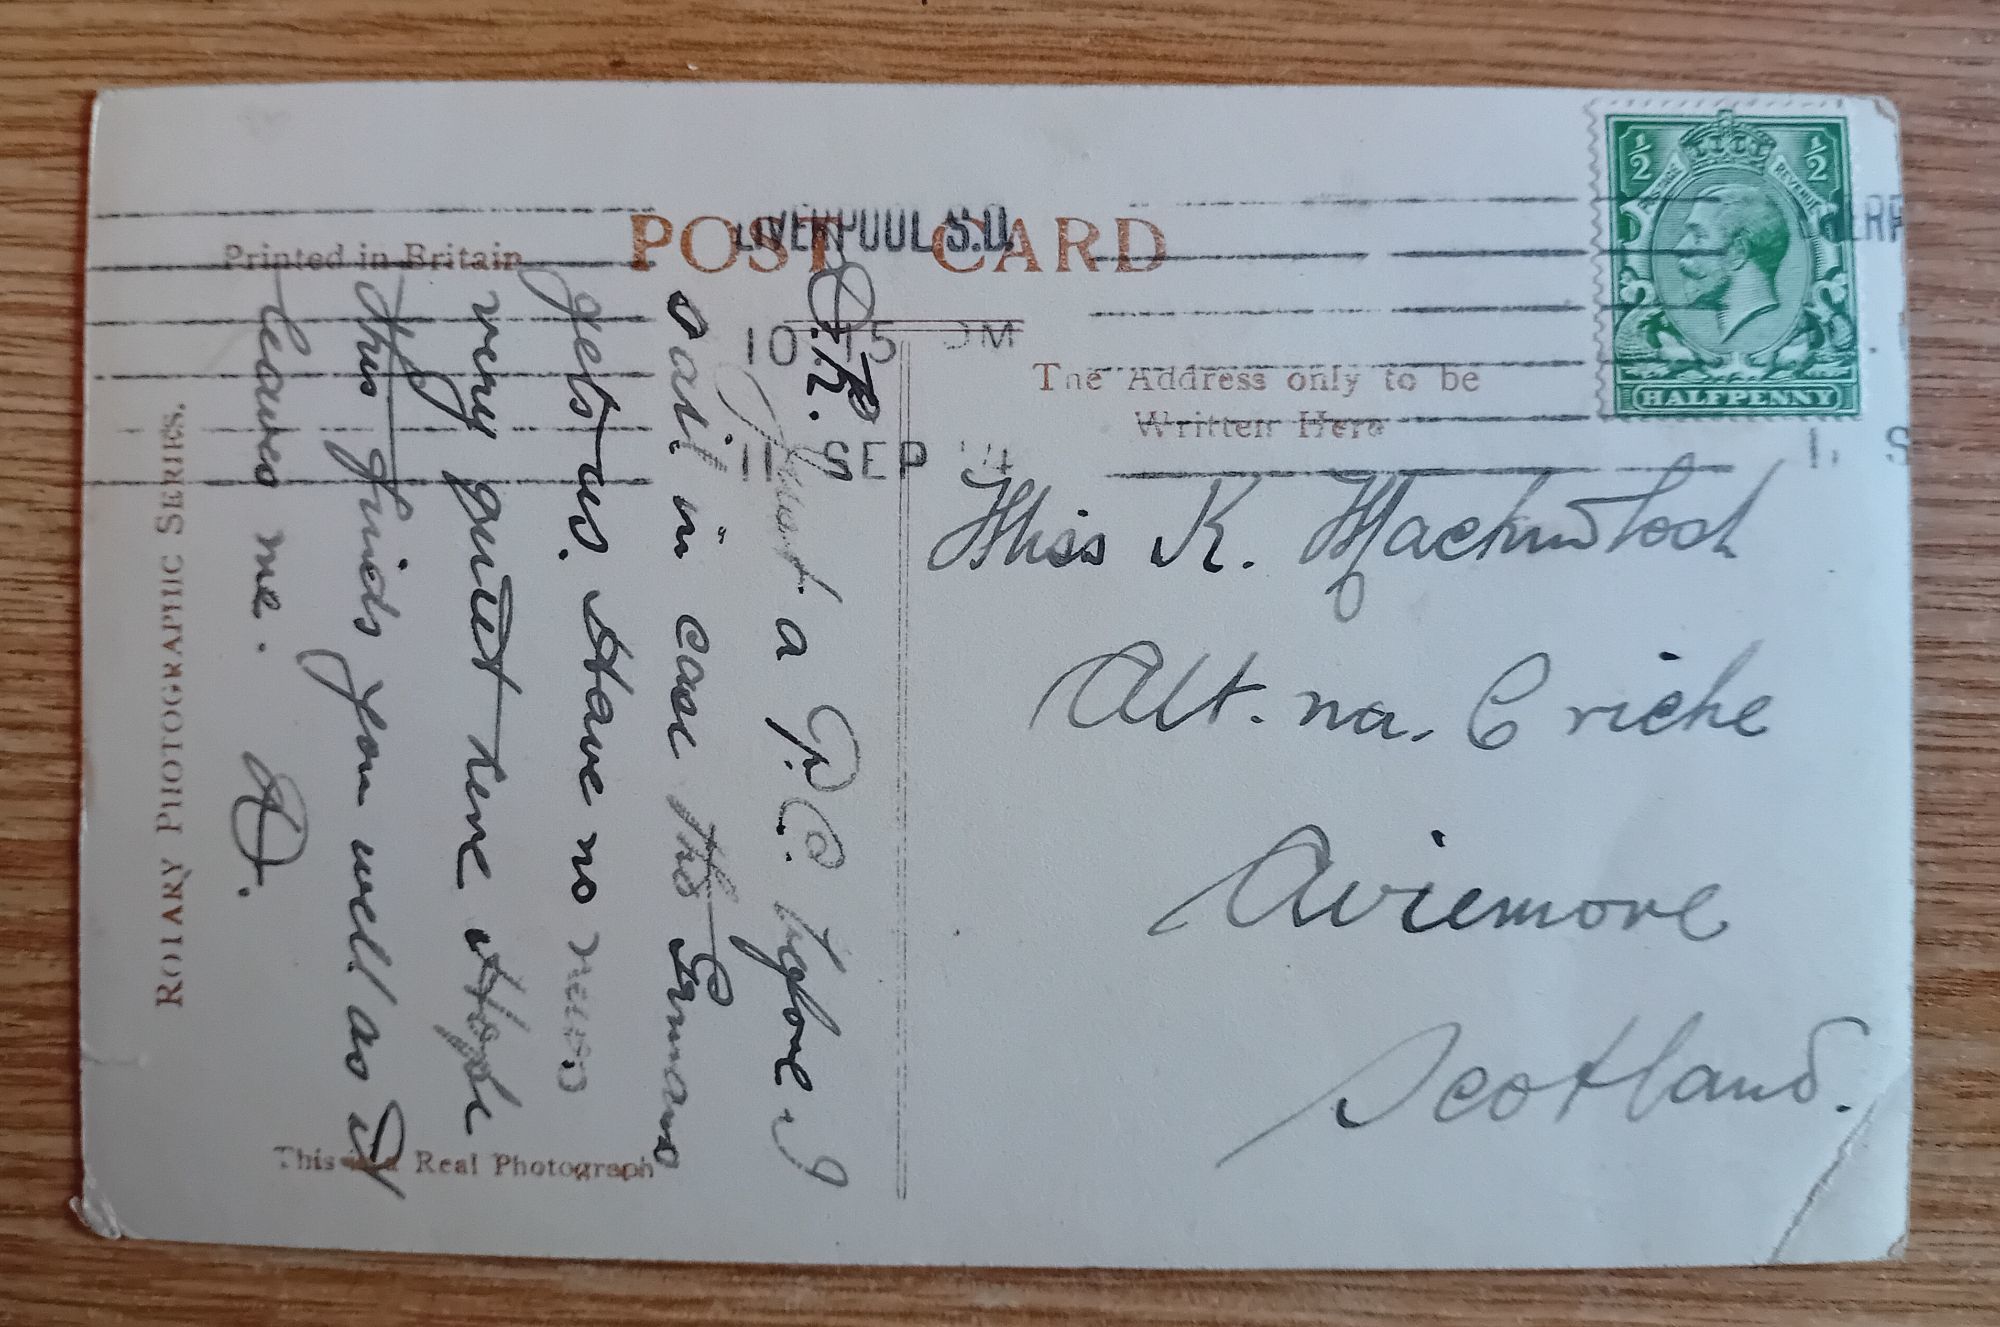 Printed in Britain
POST CARD
LIVERPOOL S.O.
10 15 PM
11 SEP 14
The Address only to be
Written Here
½ ½
POSTAGE REVENUE
HALFPENNY
ERP
1. S
Miss K. Mackintosh
Alt. na. Criche
Aviemore
Scotland.
Dr. K.
Just a P.C. before I
sail in case the Germans
gets us. Have no news
very quiet time Hope
this finds you well as it
leaves me.
A.
ROTARY PHOTOGRAPHIC SERIES.
This is a Real Photograph